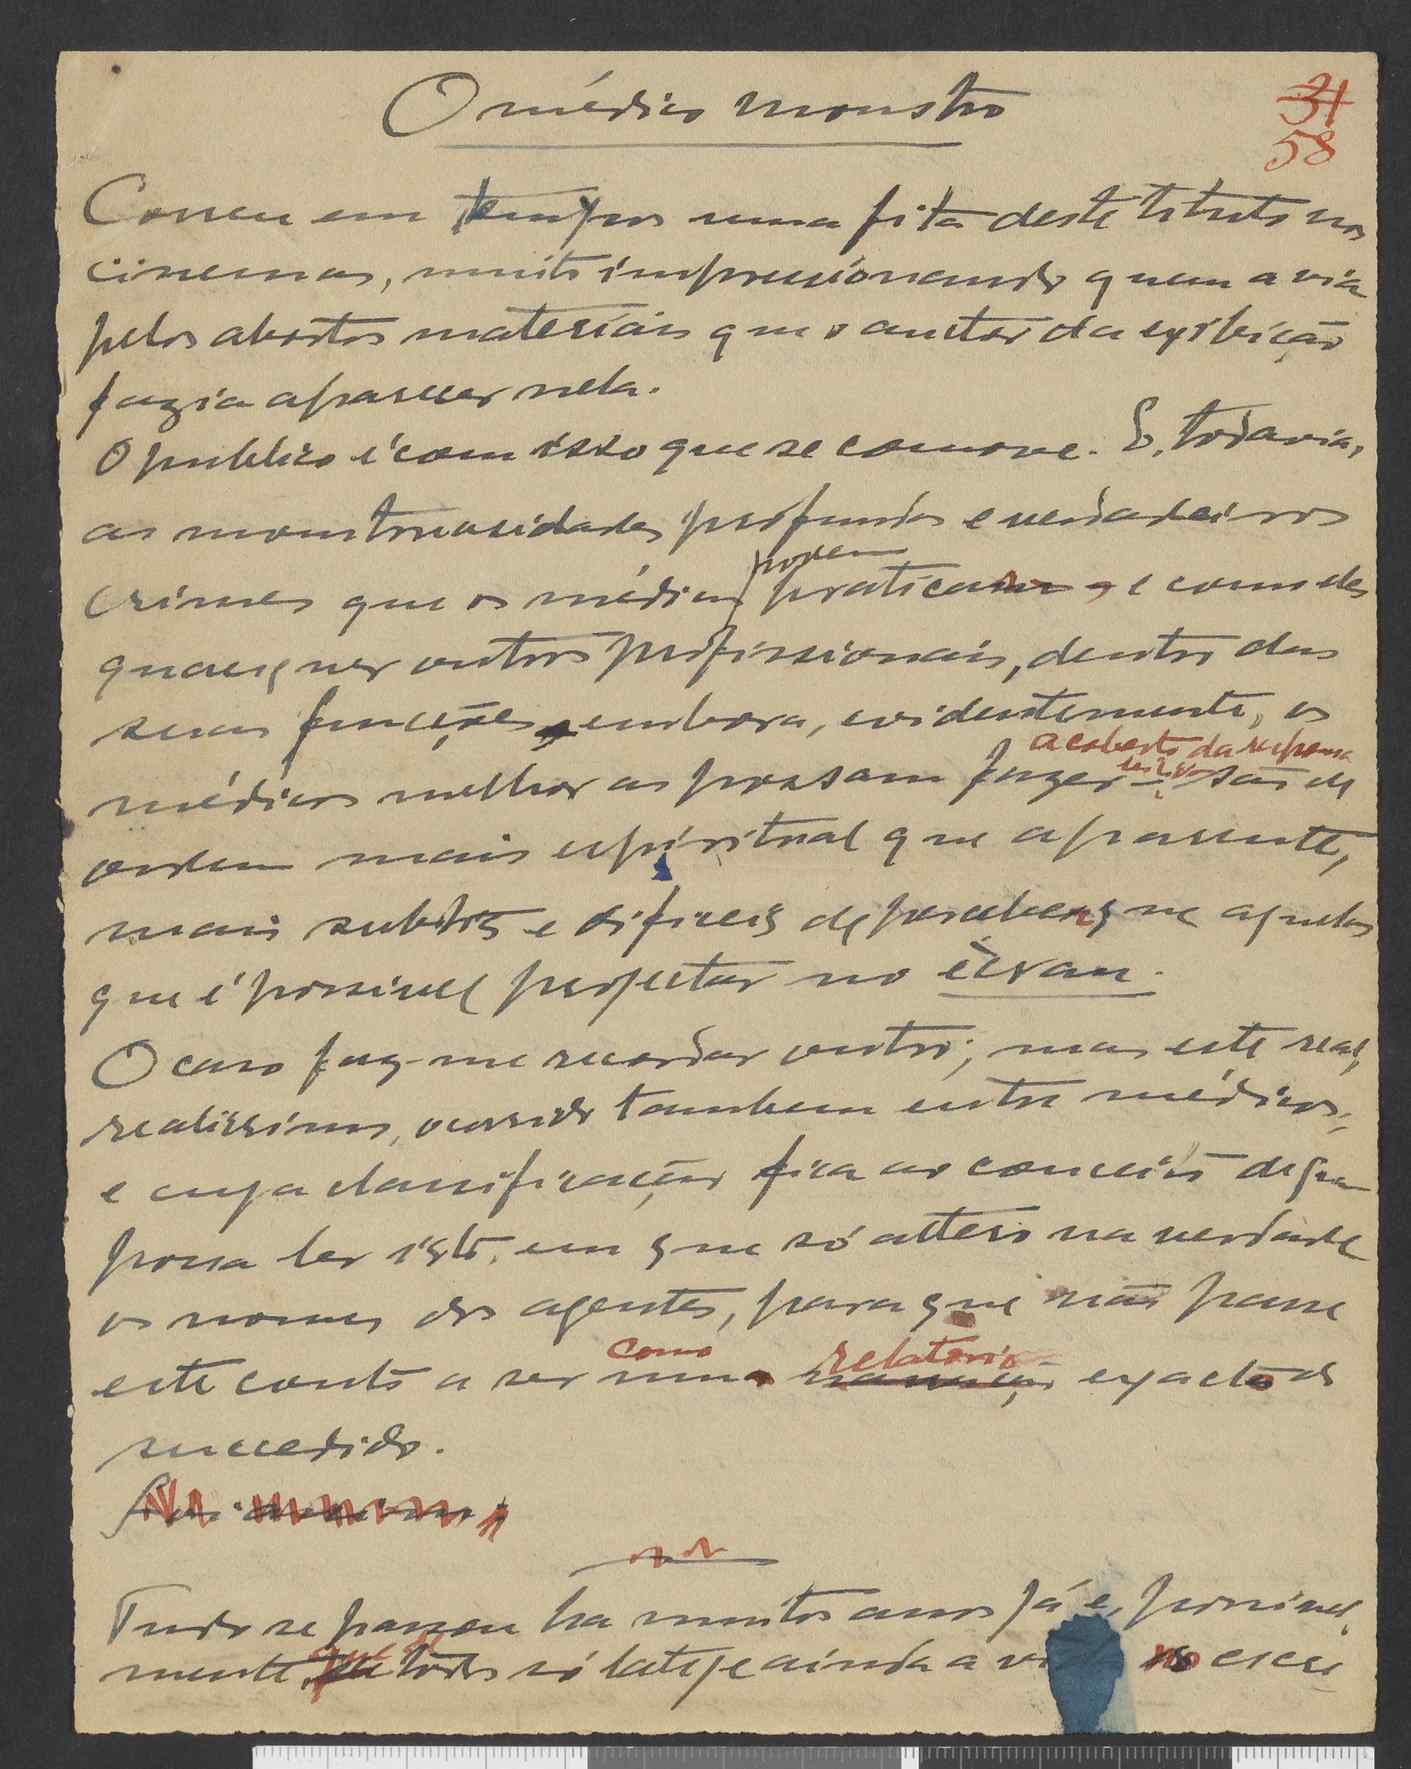 O médico monstro
31
58
Correu em tempos uma fita deste titulo nos
cinemas, muito impressionando quem a via
pelos abortos materiais que o auctor da exibição
fazia aparecer nela.
O publico é com isso que se comove. E, todavia,
as monstruosidades profundas e verdadeiros
podem
crimes que os médicos praticar, e como eles
quaesquer outros profissionais, dentro das
suas funcções, embora, evidentemente, os
a coberto da responsa
médicos melhor as possam fazer são de
ordem mais espiritual que aparente,
mais subtis e dificeis de perceber que aquelas
que é possivel projectar no écran.
O caso faz-me recordar outro; mas este real,
realissimo, ocorrido tambem entre médicos,
e cuja classificação fica ao conceito de quem
possa ler isto, em que só altero na verdade
os nomes dos agentes, para que não passe
como relatorio
este conto a ser um narração exacto do
succedido.
Tudo se passou ha muitos anos já e, possivel
mente, de todos só lateje ainda a no escri